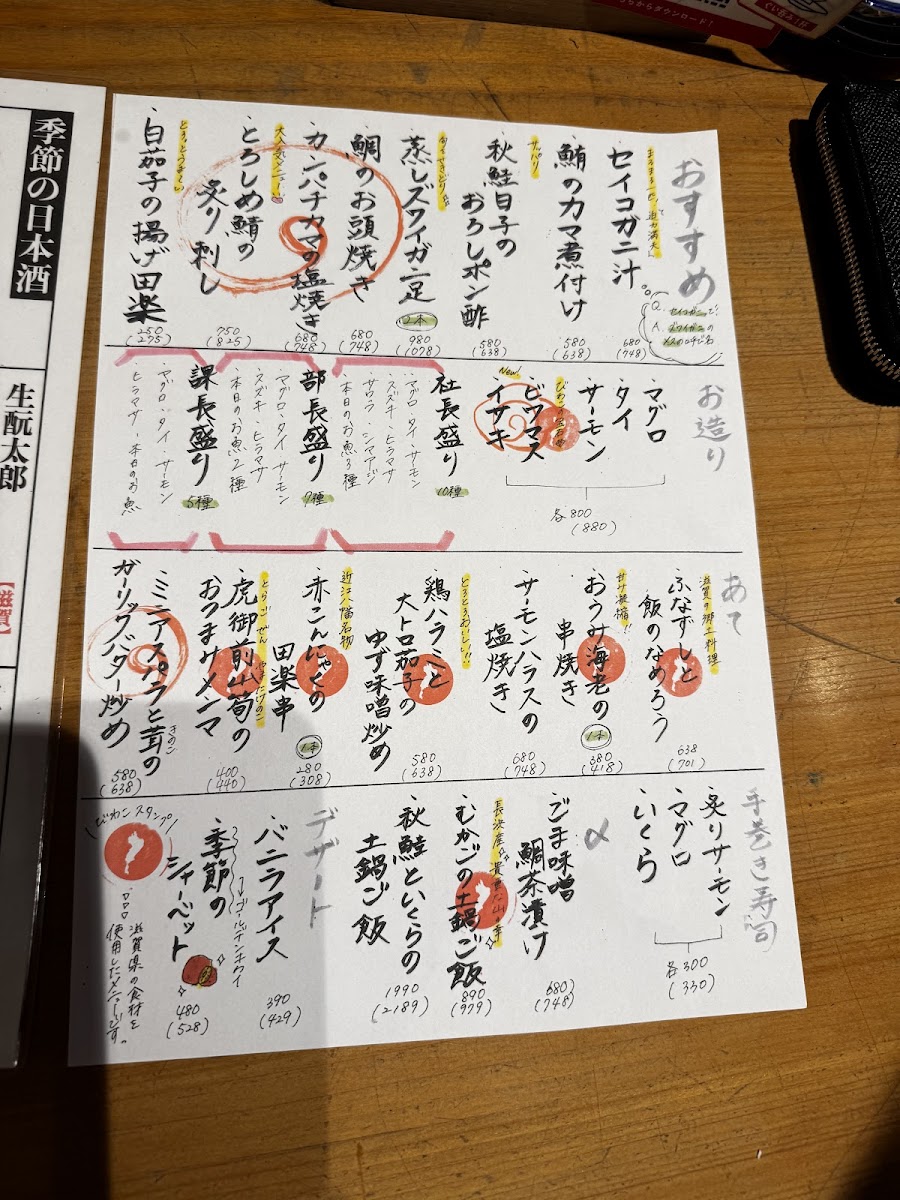 おすすめ
まるまる一匹で迫力満天!
・セイコガニ汁
680
(748)
Q. セイコガニって?
A. ズワイガニの
メスの呼び名
・鮪のカマ煮付け
580
(638)
サッパリ
・秋鮭白子の
おろしポン酢
580
(638)
・蒸しズワイガニ足
2本
980
(1078)
・鯛のお頭焼き
680
(748)
・カンパチカマの塩焼き
680
(748)
大人気メニュー!
・とろしめ鯖の
炙り刺し
750
(825)
とろっとうまい
・白茄子の揚げ田楽
250
(275)
お造り
・マグロ
・タイ
・サーモン
びわこの宝石
・ビワマス
New!
・イサキ
各800
(880)
・社長盛り
10種
・マグロ・タイ・サーモン
・スズキ・ヒラマサ
・サワラ・シマアジ
・本日のお魚3種
・部長盛り
7種
・マグロ・タイ・サーモン
・スズキ・ヒラマサ
・本日のお魚2種
・課長盛り
5種
・マグロ・タイ・サーモン
・ヒラマサ・本日のお魚
あて
滋賀の郷土料理
・ふなずしと
飯のなめろう
638
(701)
甘サ凝縮!!
・おうみ海老の
串焼き
1本
380
(418)
・サーモンハラスの
塩焼き
680
(748)
とろとろおいしい!!
・鶏ハラミと
大トロ茄子の
ゆず味噌炒め
580
(638)
近江八幡名物
・赤こんにゃくの
田楽串
1本
280
(308)
とらごぜん
たけのこ
・虎御前山筍の
おつまみメンマ
400
(440)
・ミニアスパラと茸の
きのこ
ガーリックバター炒め
580
(638)
手巻き寿司
・炙りサーモン
・マグロ
・いくら
各300
(330)
〆
・ごま味噌
鯛茶漬け
680
(748)
長浜産
貴重な山の幸
・むかごの土鍋ご飯
890
(979)
・秋鮭といくらの
土鍋ご飯
1990
(2189)
デザート
・バニラアイス
390
(429)
・季節の
シャーベット
→ゴールデンキウイ
480
(528)
\びわこスタンプ/
滋賀県の食材を
使用したメニューです。
季節の日本酒
生酛太郎
【滋賀】
らダウンロード!